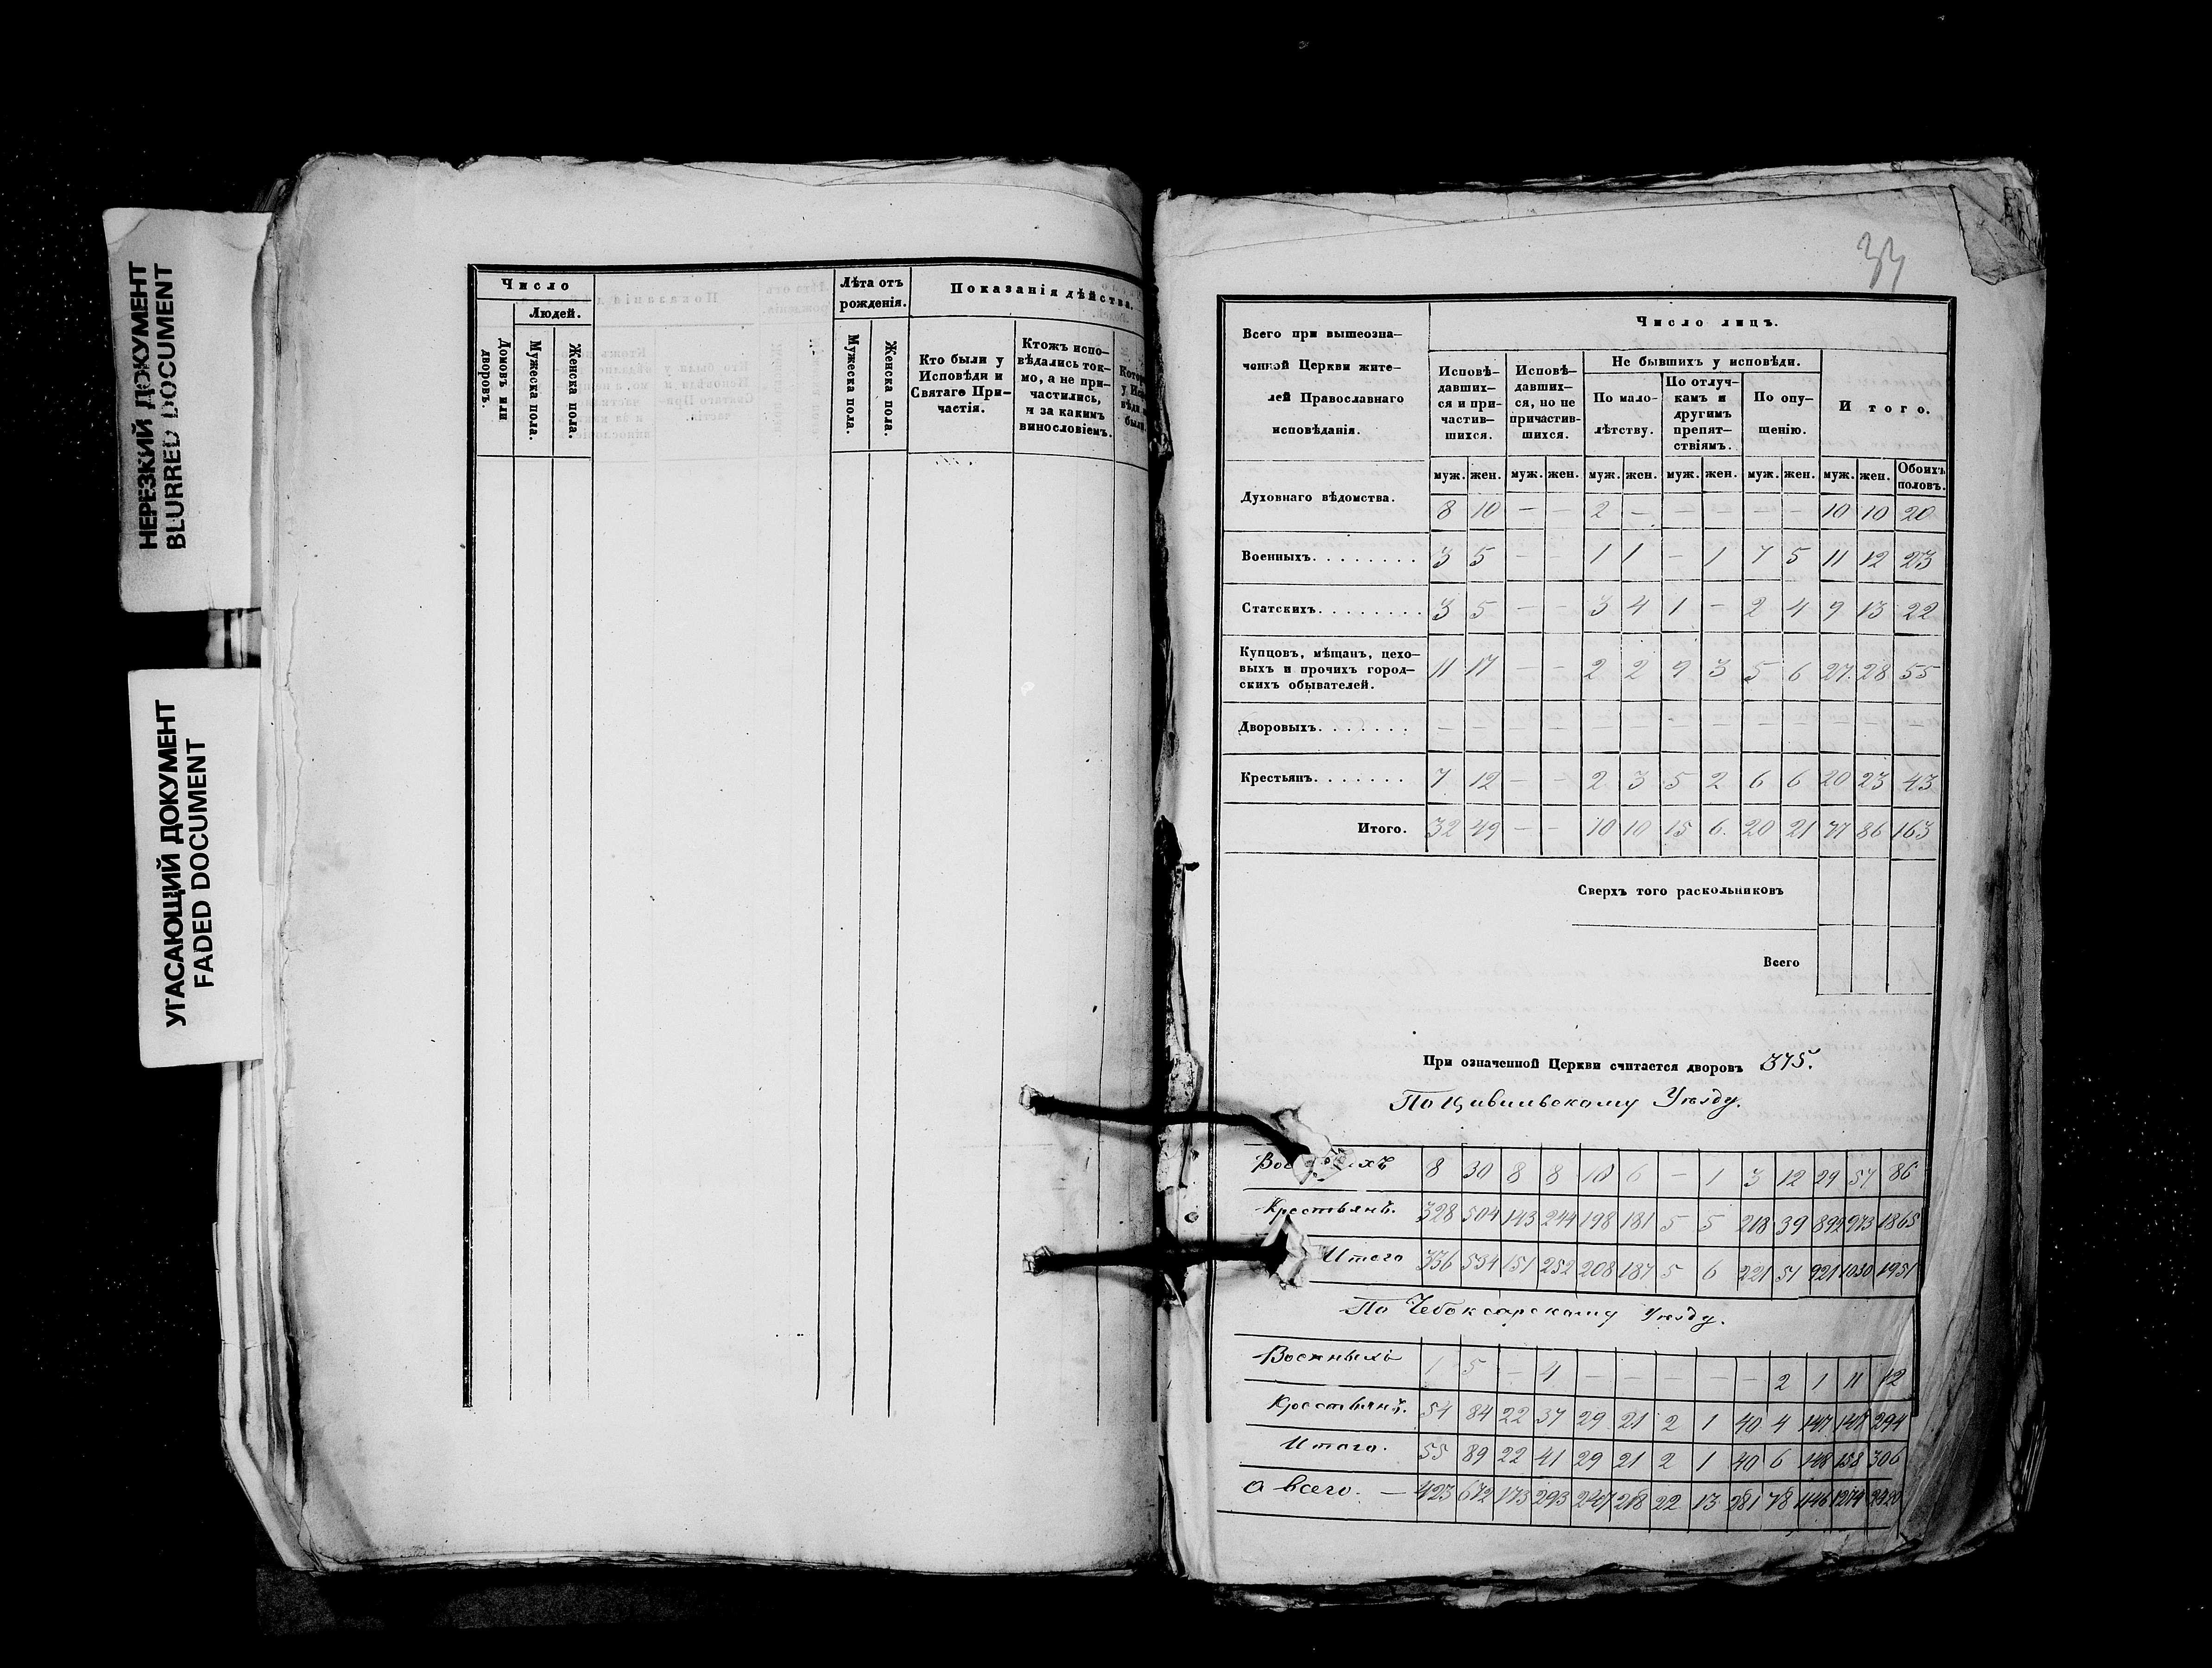 НЕРЕЗКИЙ ДОКУМЕНТ
BLURRED DOCUMENT
УГАСАЮЩИЙ ДОКУМЕНТ
FADED DOCUMENT
Число
Людей.
Домовъ или дворовъ.
Мужеска пола.
Женска пола.
Лѣта отъ рожденія.
Мужеска пола.
Женска пола.
Показанія дѣйства.
Кто были у
Исповѣди и
Святаго При-
частія.
Ктожъ испо-
вѣдались ток-
мо, а не при-
частились,
и за какимъ
винословіемъ.
33
Всего при вышеозна-
ченной Церкви жите-
лей Православнаго
исповѣданія.
Число лицъ.
Исповѣ-
давших-
ся и при-
частив-
шихся.
Исповѣ-
давших-
ся, но не
причастив-
шихся.
Не бывшихъ у исповѣди.
По мало-
лѣтству.
По отлуч-
камъ и
другимъ
препят-
ствіямъ.
По опу-
щенію.
Итого.
муж. жен. муж. жен. муж. жен. муж. жен. муж. жен. муж. жен. Обоихъ половъ.
Духовнаго вѣдомства. 8 10 — — 2 — — — — — 10 10 20
Военныхъ. 3 5 — — 1 1 — 1 7 5 11 12 23
Статскихъ. 3 5 — — 3 4 1 — 2 4 9 13 22
Купцовъ, мѣщанъ, цехо-
выхъ и прочихъ город-
скихъ обывателей. 11 17 — — 2 2 9 3 5 6 27 28 55
Дворовыхъ. — — — — — — — — — — — — —
Крестьянъ. 7 12 — — 2 3 5 2 6 6 20 23 43
Итого. 32 49 — — 10 10 15 6 20 21 77 86 163
Сверхъ того раскольниковъ
Всего
При означенной Церкви считается дворовъ 375.
По Цивильскому Уѣзду.
8 30 8 8 10 6 — 1 3 12 29 57 86
Крестьянъ. 328 504 143 244 198 181 5 5 218 39 892 973 1865
Итого 336 534 151 252 208 187 5 6 221 51 921 1030 1951
По Чебоксарскому Уѣзду.
Военныхъ 1 5 — 4 — — — — — 2 1 11 12
Крестьянъ. 54 84 22 37 29 21 2 1 40 4 147 147 294
Итого. 55 89 22 41 29 21 2 1 40 6 148 158 306
А всего. — 423 672 173 293 247 218 22 13 281 78 1146 1274 2420